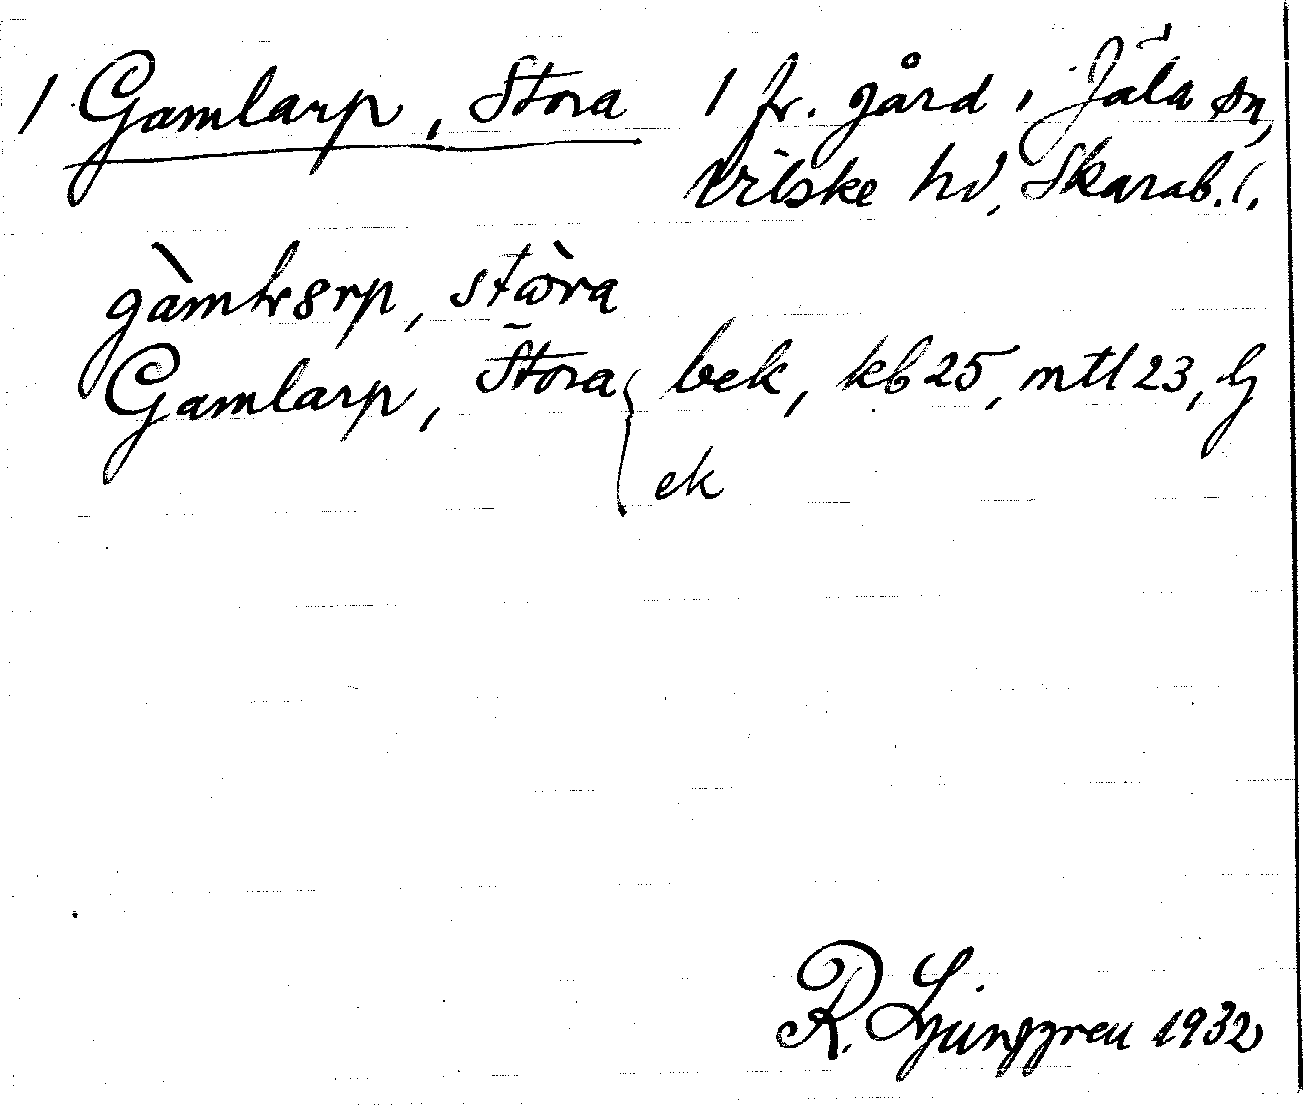 1 Gamlarp, Stora 1 fr. gård i Jäla sn,
Vilske hd, Skarab. l.
stora
Gamlarp, Stora { bek, kb 25, mtl 23, lj
ek
R. Ljunggren 1932